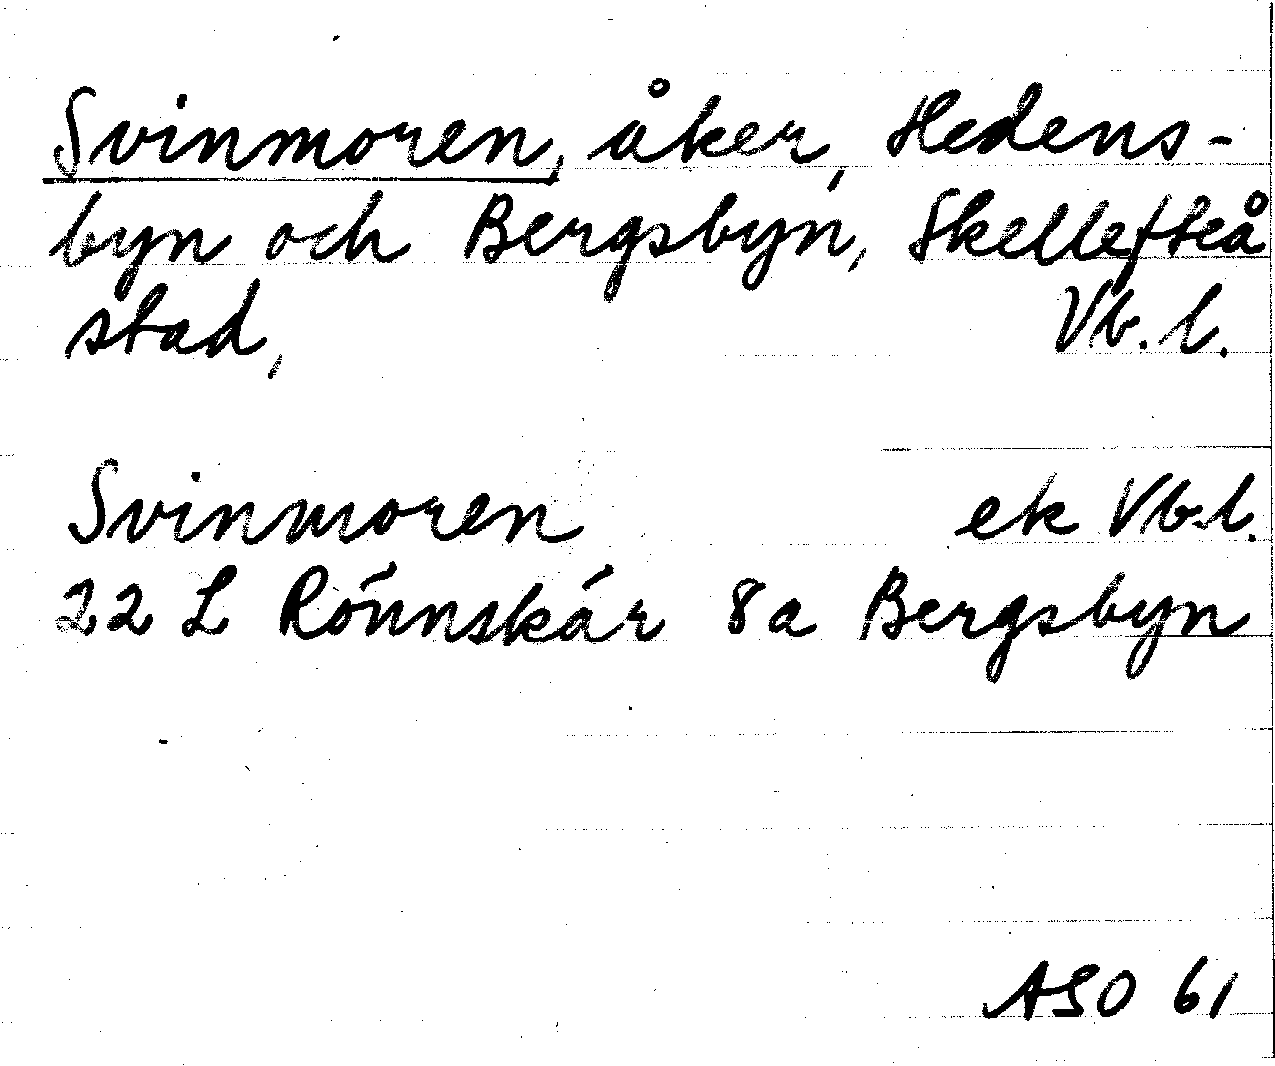 Svinmoren, åker, Hedens-
byn och Bergsbyn, Skellefteå
stad, Vb. l.
Svinmoren ek Vb.l.
22 L Rönnskär 8a Bergsbyn
ASO 61